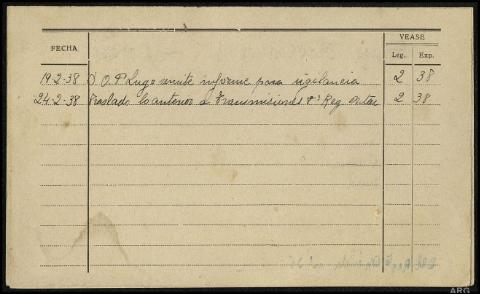 VEASE
FECHA
Leg. Exp.
19-2-38 D O.P Lugo remite informe para vigilancia 2 38
24-2-38 Traslado lo anterior a Transmisiones Reg. 2 38
ARG